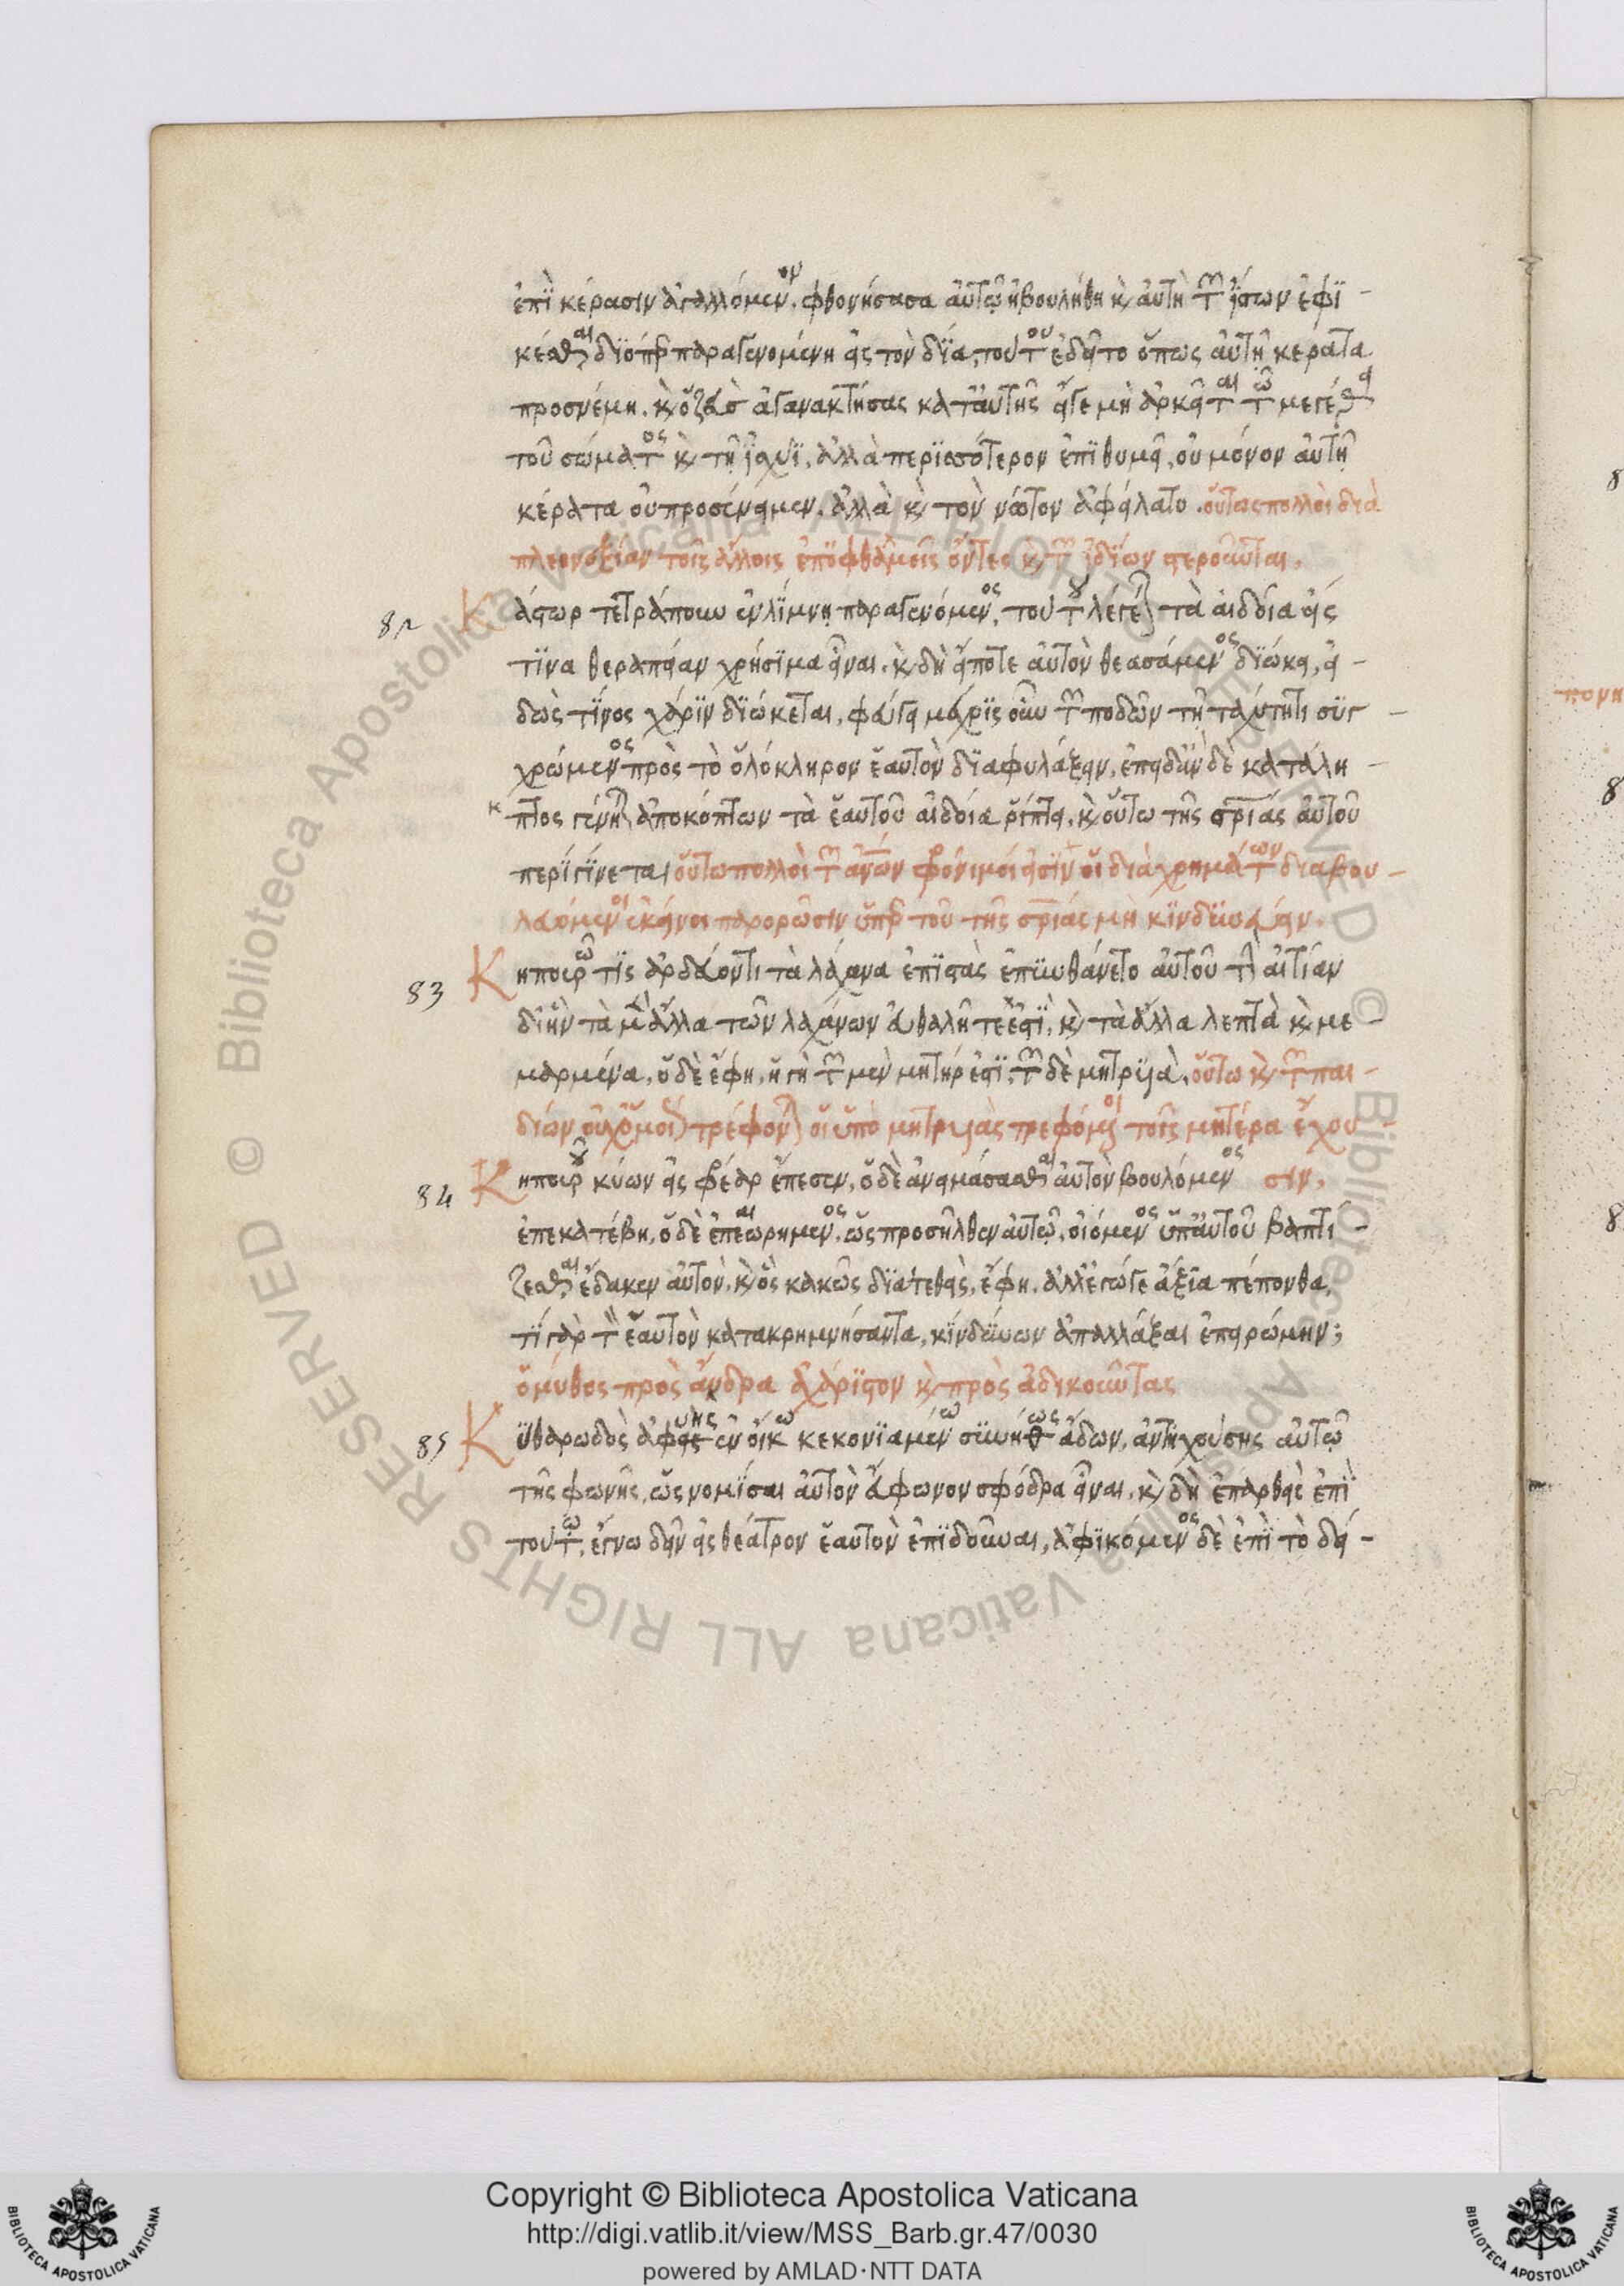 ἐπὶ κέρασιν ἀγαλλόμενον. φθονήσασα αὐτῷ ἠβουλήθη κ αὐτὴ τῶν ἴσων ἐφι-
κέσθαι διόπερ παραγενομένη εἰς τὸν δία, τούτου ἐδεῖτο ὅπως αὐτῇ κέρατα
προσνέμῃ. κ ὁ ζεὺς ἀγανακτήσας κατ' αὐτῆς εἴγε μὴ ἀρκεῖται τῷ μεγέθει
τοῦ σώματος κ τῇ ἰσχύϊ, ἀλλὰ περισσότερον ἐπιθυμεῖ, οὐ μόνον αὐτῇ
κέρατα οὐ προσένειμεν. ἀλλὰ κ τὸν νῶτον ἀφείλατο. οὕτως πολλοὶ διὰ
πλεονεξίαν τοῖς ἄλλοις ἐποφθαλμοῖς ὄντες κ τῶν ἰδίων στεροῦνται.
82 Κάστωρ τετράπουν ἐν λίμνῃ παραγενόμενος, τούτου λέγεται τὰ αἰδοία εἴς
τινα θεραπείαν χρήσιμα εἶναι. κ δὴ εἴποτε αὐτὸν θεασάμενος διώκει, εἰ-
δὼς τίνος χάριν διώκεται, φεύγει μέχρις οὖν τῶν ποδῶν τῇ ταχύτητι συγ-
χρώμενος πρὸς τὸ ὁλόκληρον ἑαυτὸν διαφυλάξειν. ἐπειδὰν δὲ κατάλη-
κ πτος γένηται ἀποκόπτων τὰ ἑαυτοῦ αἰδοία ῥίπτει. κ οὕτω τῆς σριας αὐτοῦ
περιγίνεται οὕτω πολλοὶ τῶν ανων φρόνιμοί εἰσιν οἳ διὰ χρημάτων διαβου-
λευόμενοι ἐκεῖνοι παρορῶσιν ὑπὲρ τοῦ τῆς σριας μὴ κινδυνεύειν.
83 Κηπουρῷ τις ἀρδεύοντι τὰ λάχανα ἐπιστὰς ἐπυνθάνετο αὐτοῦ τὴν αἰτίαν
δι' ἣν τὰ μὲν ἄλλα τῶν λαχάνων εὐθαλῆ τε ἐστὶ, κ τὰ ἄλλα λεπτὰ κ με-
μαρμένα, ὁ δὲ ἔφη, ἡ γῆ τῶν μὲν μήτηρ ἐστὶ, τῶν δὲ μητρυιὰ, οὕτω κ τῶν παι-
δίων οὐχ ὅμοια τρέφονται οἱ ὑπὸ μητρυιᾶς τρεφόμενοι τοῖς μητέρα ἔχου-
84 Κηπουροῦ κύων εἰς φρέαρ ἔπεσεν, ὁ δὲ ἀνειμάσασθαι αὐτὸν βουλόμενος σιν.
ἐπεκατέβη. ὁ δὲ ἐπαιωρημενος. ὡς προσῆλθεν αὐτῷ. οἰόμενος ὑπ' αὐτοῦ βαπτί-
ζεσθαι ἔδακεν αὐτόν. κ ὃς κακῶς διατεθεὶς, ἔφη. ἀλλ' ἔγωγε ἄξια πέπονθα,
τί γὰρ τὸν ἑαυτὸν κατακρημνήσαντα, κινδύνων ἀπαλλάξαι ἐπειρώμην;
ὁ μύθος πρὸς ἄνδρα ἀχάριστον κ πρὸς ἀδικοῦντας
85 Κυθαρωδὸς ἀφυὴς ἐν οἴκῳ κεκονιαμένῳ συνήθως ἄδων, ἀντηχούσης αὐτῷ
τῆς φωνῆς, ὡς νομίσαι αὐτὸν εὔφωνον σφόδρα εἶναι. κ δὴ ἐπαρθεὶς ἐπὶ
τούτῳ, ἔγνω δεῖν εἰς θέατρον ἑαυτὸν ἐπιδοῦναι, ἀφικόμενος δὲ ἐπὶ τὸ δεί-
Copyright © Biblioteca Apostolica Vaticana
http://digi.vatlib.it/view/MSS_Barb.gr.47/0030
powered by AMLAD·NTT DATA